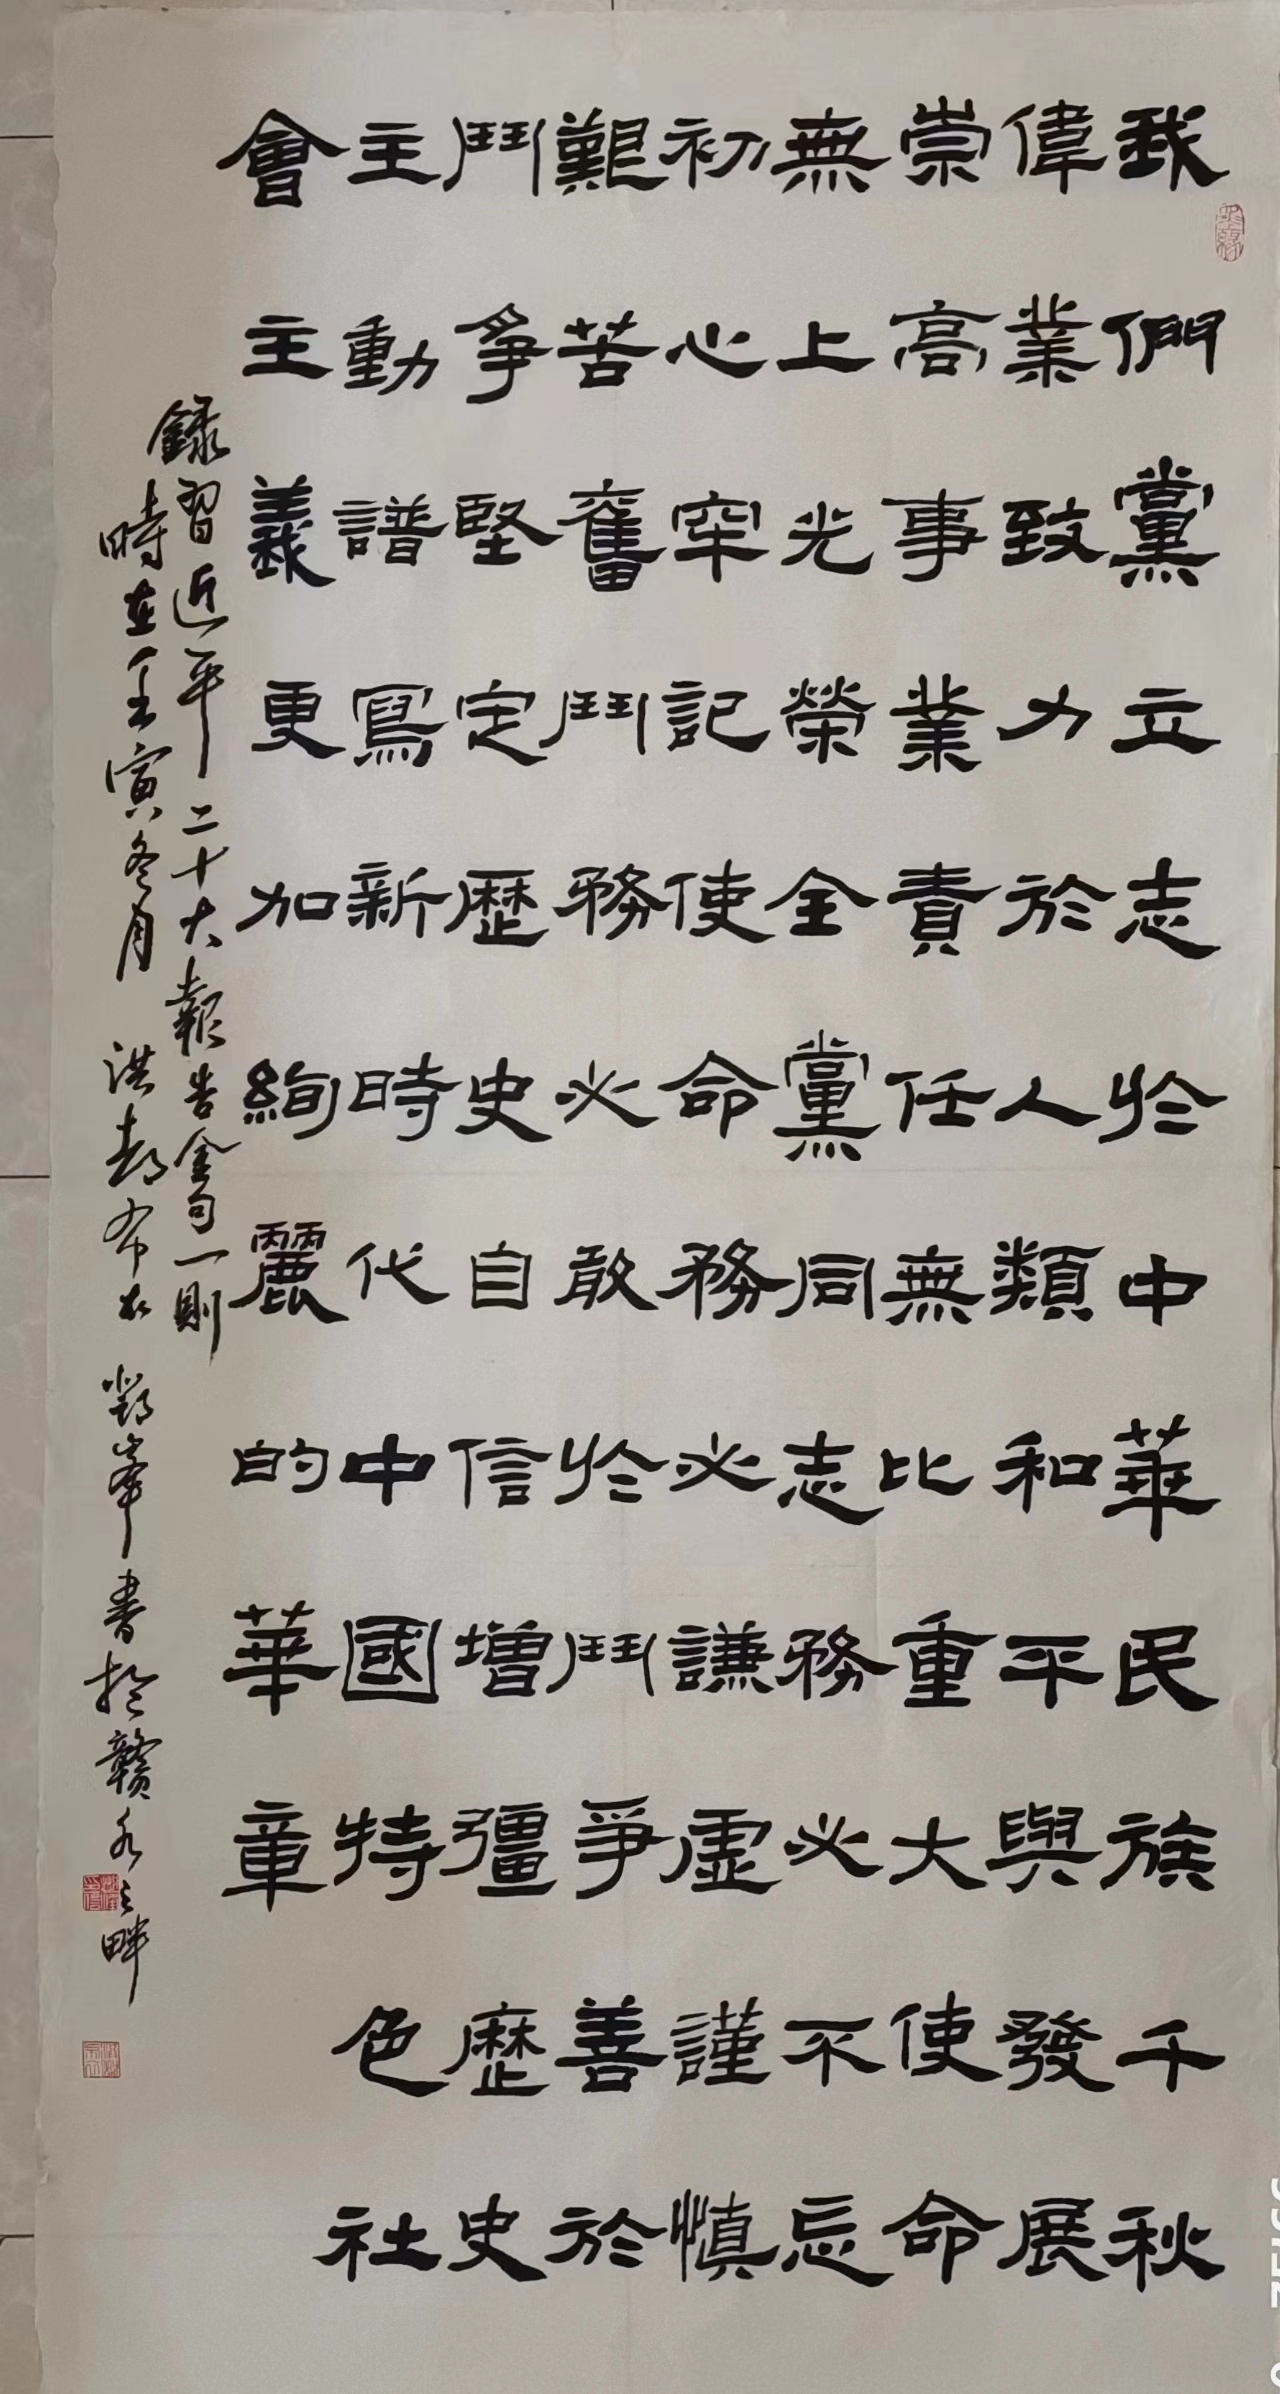 我們黨立志於中華民族千秋
偉業致力於人類和平與發展
崇高事業責任無比重大使命
無上光榮全黨同志務必不忘
初心牢記使命務必謙虛謹慎
艱苦奮鬥務必敢於鬥爭善於
鬥爭堅定歷史自信增彊歷史
主動譜寫新時代中國特色社
會主義更加絢麗的華章
錄習近平二十大報告金句一則
時在壬寅冬月 洪都 鄧峯書於贛水之畔